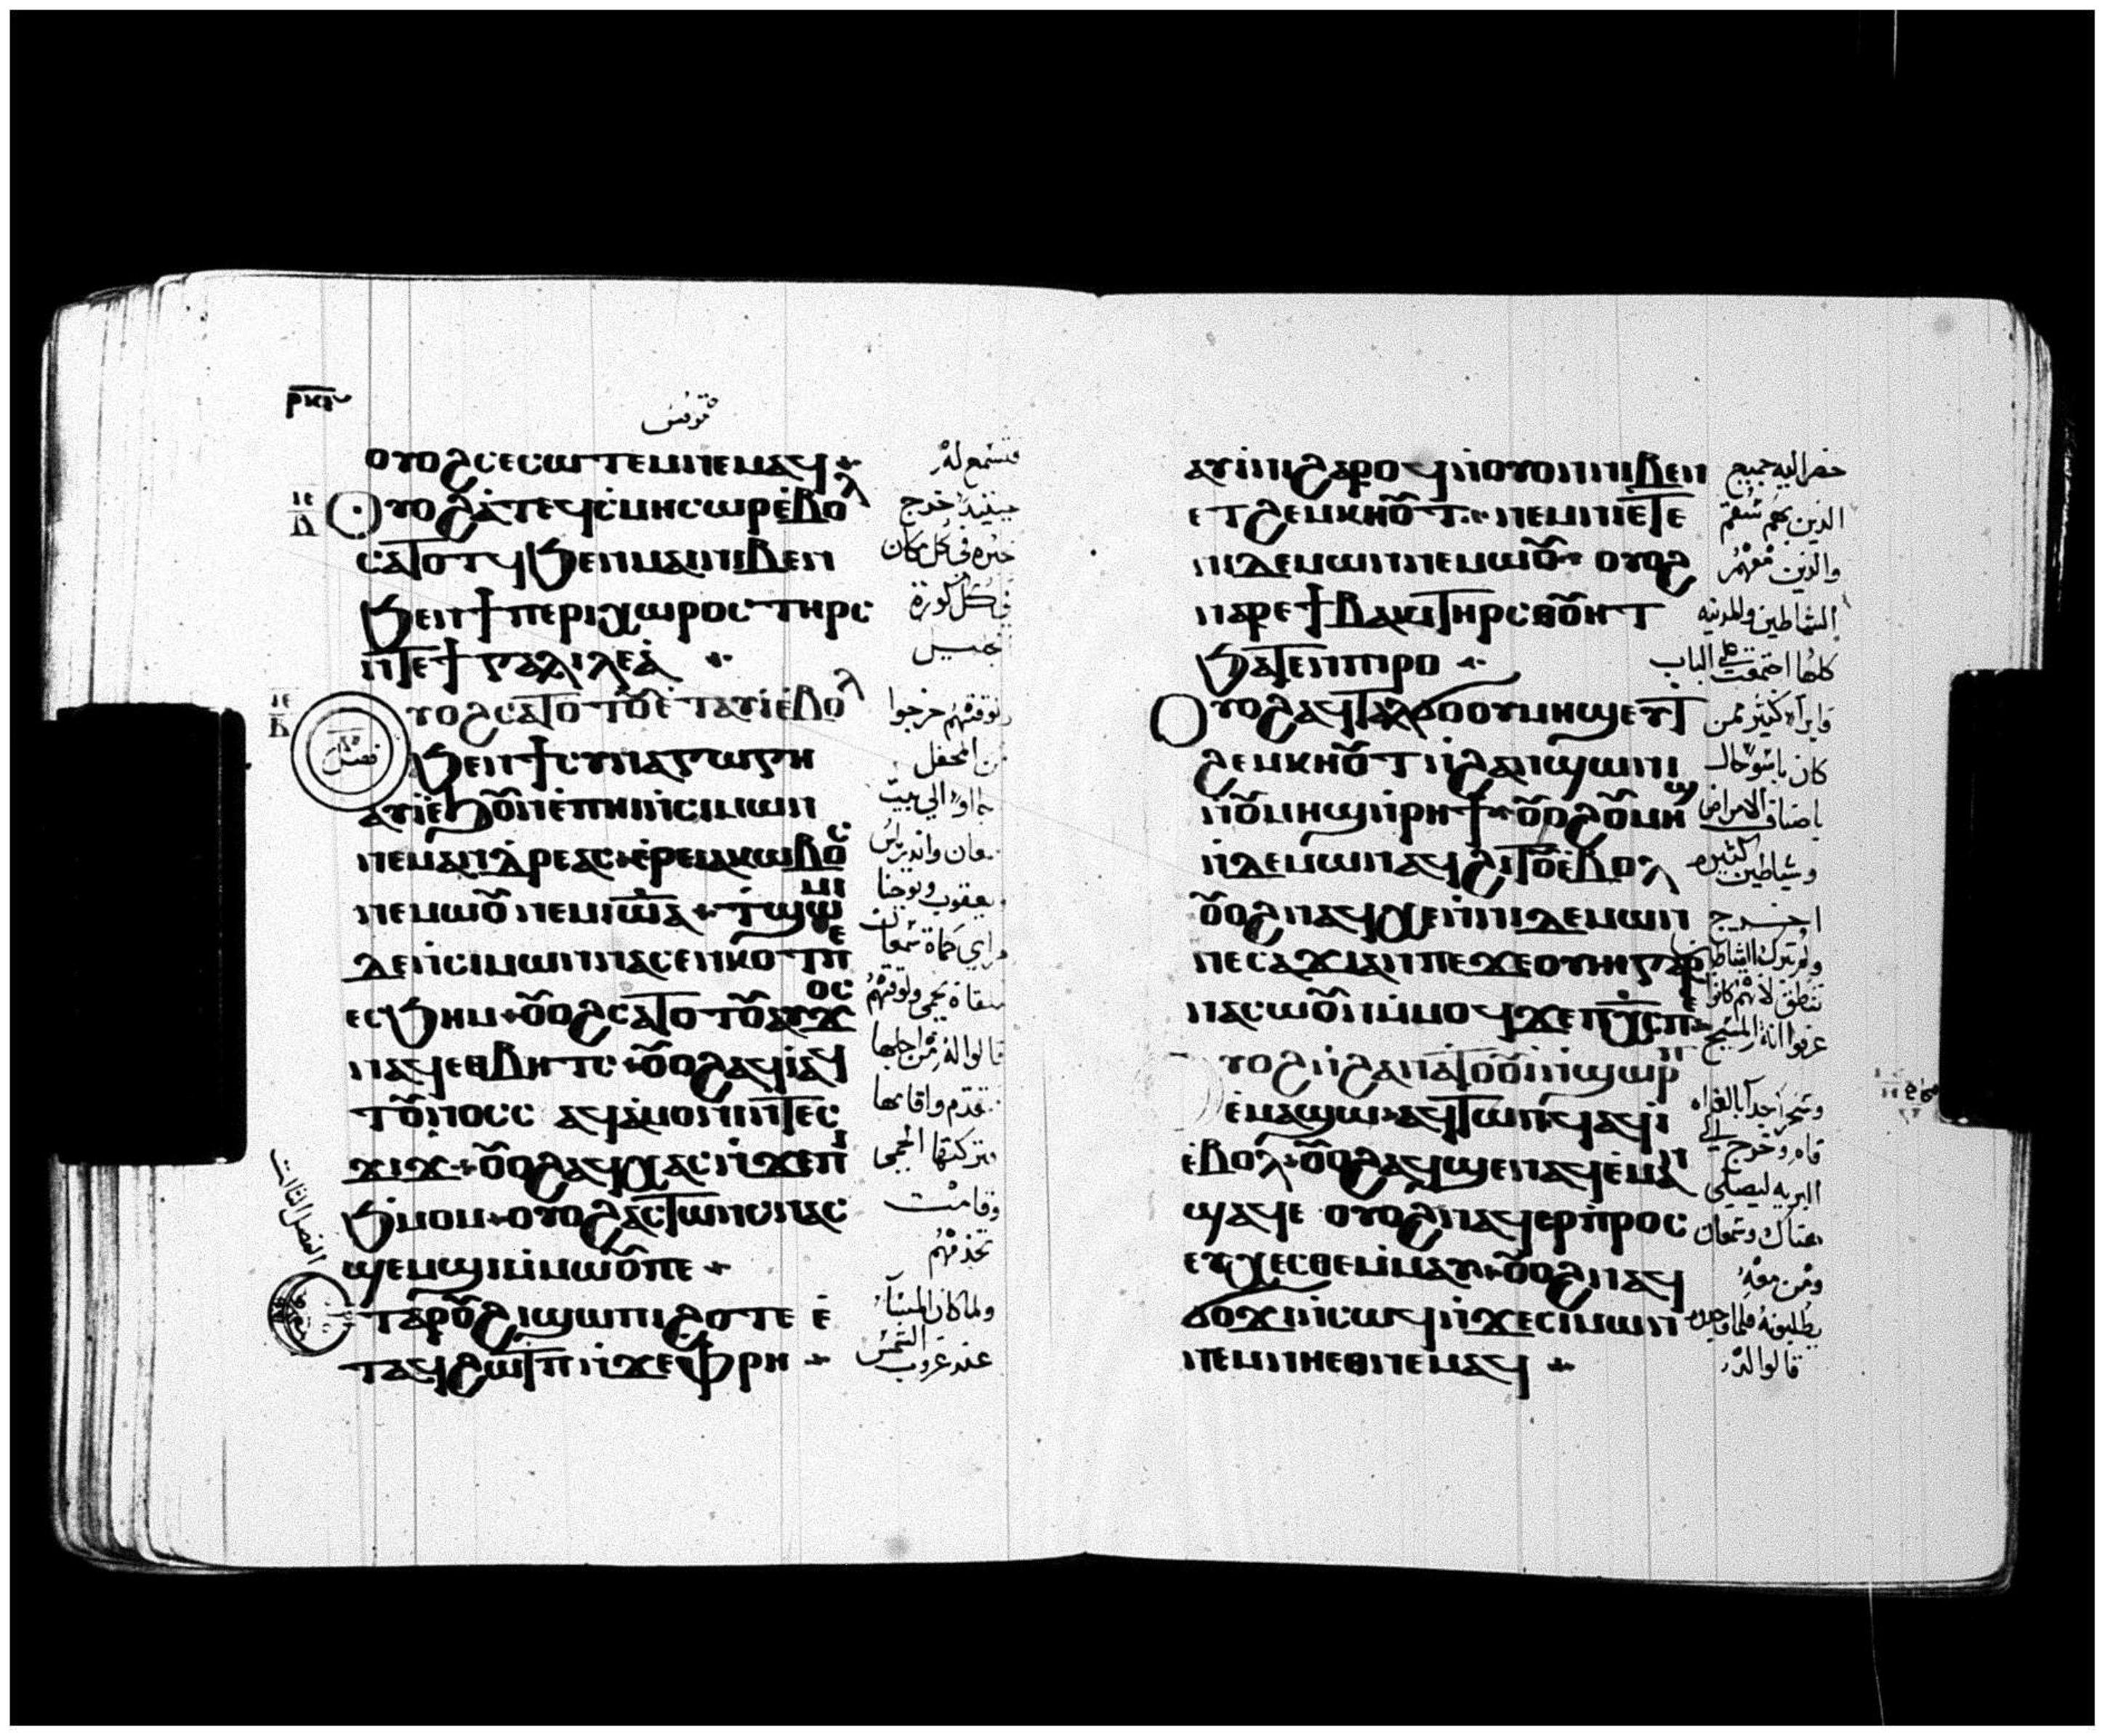 ⲣⲕⲅ
ⲟⲩⲟϩⲥⲉⲥⲱⲧⲉⲙⲛⲉⲙⲁϥ
ⲟⲩⲟϩⲁ̇ⲧⲉϥⲥ̇ⲙⲏⲥⲱⲣⲉ̇ⲃⲟⲗ
ⲥⲁⲧⲟⲧϥϧⲉⲛⲙⲁⲓⲛⲓⲃⲉⲛ
ϧⲉⲛϯⲡⲉⲣⲓⲭⲱⲣⲟⲥⲧⲏⲣⲥ
ⲛ̇ⲧⲉϯⲅⲁⲗⲓⲗⲉⲁ̇
ⲟⲩⲟϩⲥⲁⲧⲟⲧⲟ̅ⲉ̇ⲧⲁⲩⲓ̇ⲉ̇ⲃⲟⲗ
ϧⲉⲛϯⲥⲩⲛⲁⲅⲱⲅⲏ
ⲁⲩⲓ̇ⲉ̇ϧⲟ̅ⲛⲉ̇ⲡⲏⲓⲛ̇ⲥⲓⲙⲱⲛ
ⲛⲉⲙⲁⲛⲇⲣⲉⲁⲥⲉ̇ⲣⲉⲓⲁⲕⲱⲃⲟⲥ
ⲛⲉⲙⲱⲟ̅ⲛⲉⲙⲓⲱ̅ⲁ ⲧ̇ϣⲱⲙⲓ
ⲇⲉⲛ̇ⲥⲓⲙⲱⲛⲛⲁⲥⲉⲛⲕⲟⲧⲡⲉ
ⲉⲥϧⲏⲙ ⲟ̅ⲟϩⲥⲁⲧⲟⲧⲟ̅ⲁⲩϫⲟⲥ
ⲛⲁϥⲉⲑⲃⲏⲧⲥ ⲟ̅ⲟϩⲁϥⲓ̇ⲁϥ
ⲧⲟ̅ⲛⲟⲥⲥ ⲁϥⲁ̇ⲙⲟⲛⲓⲛ̇ⲧⲉⲥ
ϫⲓϫ ⲟ̅ⲟϩⲁϥⲭⲁⲥⲛ̇ϫⲉⲡⲓ
ϧⲙⲟⲙ ⲟⲩⲟϩⲁⲥⲧⲱⲛⲥⲛⲁⲥ
ϣⲉⲙϣⲓⲙ̇ⲙⲱⲟ̅ⲡⲉ
ⲉⲧⲁⲣⲟ̅ϩⲓϣⲱⲡⲓϩⲟⲧⲉ ⲉ̇
ⲧⲁϥϩⲱⲧⲡⲛ̇ϫⲉⲫⲣⲏ
فتسمع له
حينئذ خرج
خبره في كل مكان
في كل كورة
الجليل
ولوقتهم خرجوا
من المحفل
جاوا الي بيت
سمعان واندراس
ويعقوب ويوحنا
وقامت
تخدمهم
ولما كان المساء
عند غروب الشمس
الفصل الثالث
ⲁⲩⲓ̇ⲛⲓϩⲁⲣⲟϥⲛ̇ⲟⲩⲟⲛⲛⲓⲃⲉⲛ
ⲉⲧϩⲉⲙⲕⲏⲟ̅ⲧ ⲛⲉⲙⲛⲏⲉⲧⲉ
ⲛⲓⲇⲉⲙⲱⲛⲛⲉⲙⲱⲟ̅ ⲟⲩⲟϩ
ⲛⲁⲣⲉϯⲃⲁⲕⲓⲧⲏⲣⲥⲑⲟ̅ⲏⲧ
ϧⲁⲧⲉⲛⲡⲓⲣⲟ
ⲟⲩⲟϩⲁϥⲧⲁⲗϭⲟⲟⲩⲙⲏϣⲉⲩⲧ
ϩⲉⲙⲕⲏⲟ̅ⲧⲛ̇ϩⲁⲛϣⲱⲛⲓ
ⲛ̇ⲟ̅ⲙⲏϣⲛ̇ⲣⲏϯ ⲟ̅ⲟϩⲟ̅ⲙⲏϣ
ⲛ̇ⲇⲉⲙⲱⲛⲁϥϩⲓⲧⲟ̅ⲉ̇ⲃⲟⲗ
ⲟ̅ⲟϩⲛⲁϥⲭⲉⲛ̇ⲛⲓⲇⲉⲙⲱⲛ
ⲛⲉⲥⲁϫⲓⲁⲛⲡⲉϫⲉⲟⲩⲏⲓⲅⲁⲣ
ⲛⲁⲥⲱⲟ̅ⲛⲙ̇ⲙⲟϥϫⲉⲡⲭ̅ⲥⲡⲉ
ⲟⲩⲟϩⲛ̇ϩⲁⲛⲁⲧⲟⲟ̅ⲓⲛ̇ϣⲱⲣⲡ
ⲉ̇ⲙⲁϣⲱ ⲁϥⲧⲱⲛϥⲁϥⲓ̇
ⲉ̇ⲃⲟⲗ ⲟ̅ⲟϩⲁϥϣⲉⲛⲁϥⲉ̇ⲙⲁⲛ
ϣⲁϥⲉ ⲟⲩⲟϩⲛⲁϥⲉⲣⲡ̇ⲣⲟⲥ
ⲉⲩⲭⲉⲥⲑⲉⲙ̇ⲙⲁⲩ ⲟ̅ⲟϩⲛⲁϥ
ϭⲟϫⲓⲛ̇ⲥⲱϥⲛ̇ϫⲉⲥⲓⲙⲱⲛ
ⲛⲉⲙⲛⲏⲉⲑⲛⲉⲙⲁϥ
حضر اليه جميع
الذين بهم سقم
والذين معهم
الشياطين والمدينه
كلها اجتمعت علي الباب
كان باسو حال
باصناف الامراض
وشياطين كثيره
اخرج
عرفوا انه المسيح
قام وخرج الي
البريه ليصلي
هناك وسمعان
ومن معه
يطلبونه فلما وجدوه
قالوا له